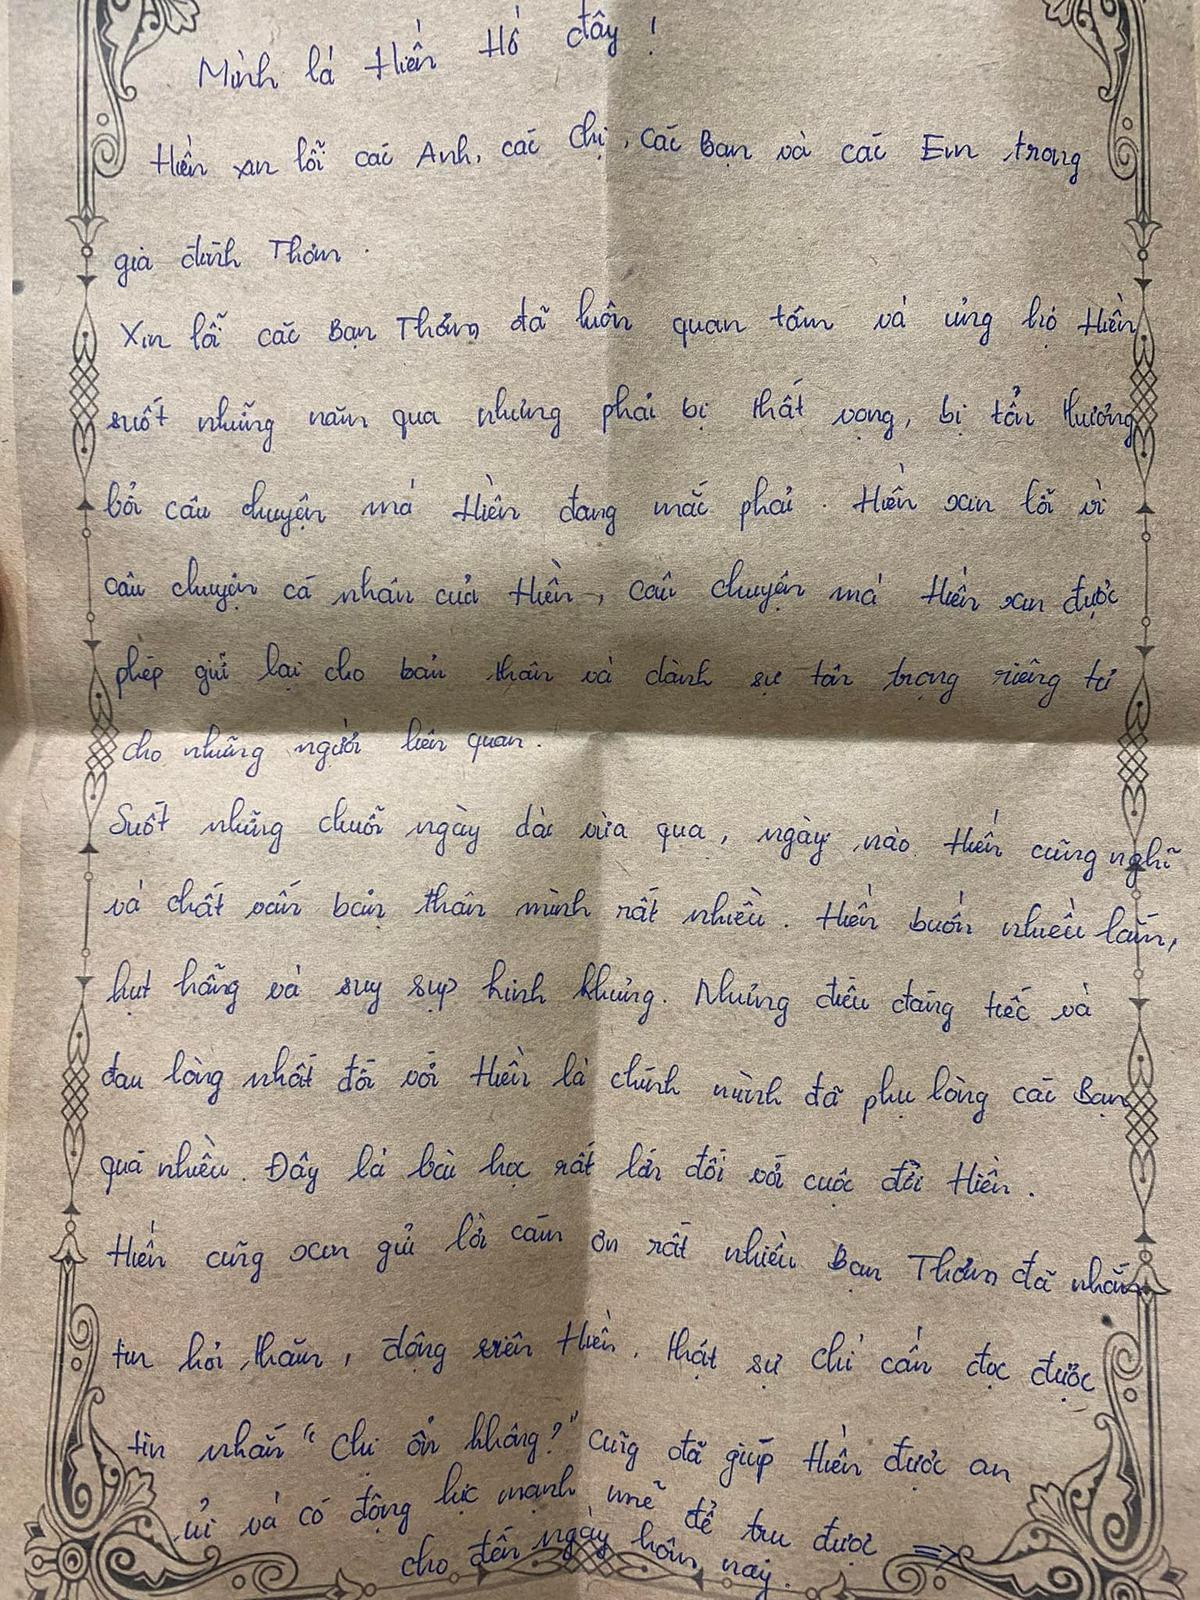 Mình là Hiền Hồ đây !
Hiền xin lỗi các Anh, các Chị, các Bạn và các Em trong
gia đình Thơm .
Xin lỗi các Bạn Thơm đã luôn quan tâm và ủng hộ Hiền
suốt những năm qua nhưng phải bị thất vọng, bị tổn thương
bởi câu chuyện mà Hiền đang mắc phải . Hiền xin lỗi vì
câu chuyện cá nhân của Hiền, câu chuyện mà Hiền xin được
phép giữ lại cho bản thân và dành sự tôn trọng riêng tư
cho những người liên quan .
Suốt những chuỗi ngày dài vừa qua, ngày nào Hiền cũng nghĩ
và chất vấn bản thân mình rất nhiều . Hiền buồn nhiều lắm,
hụt hẫng và suy sụp kinh khủng. Nhưng điều đáng tiếc và
đau lòng nhất đối với Hiền là chính mình đã phụ lòng các Bạn
quá nhiều. Đây là bài học rất lớn đối với cuộc đời Hiền .
Hiền cũng xin gửi lời cảm ơn rất nhiều Bạn Thơm đã nhắn
tin hỏi thăm, động viên Hiền, thật sự chỉ cần đọc được
tin nhắn "Chị ổn không?" cũng đã giúp Hiền được an
ủi và có động lực mạnh mẽ để trụ được ⇒
cho đến ngày hôm nay .